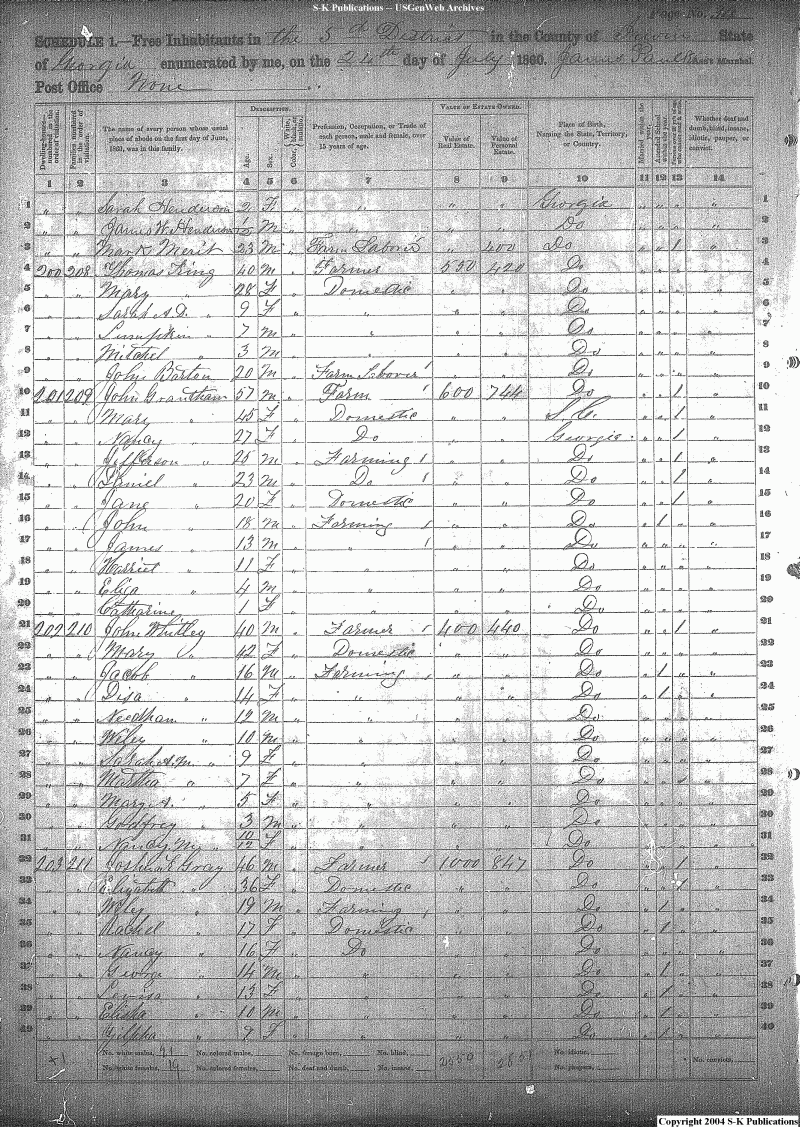 S-K Publications -- USGenWeb Archives
Page No.
SCHEDULE 1.—Free Inhabitants in the 5th District in the County of Irwin State
of Georgia enumerated by me, on the 24th day of July 1860. James Paulk Ass't Marshal
Post Office None
Dwelling-houses—numbered in the order of visitation. Families numbered in the order of visitation. The name of every person whose usual place of abode on the first day of June, 1860, was in this family. DESCRIPTION. Age. Sex. Color, White, black, or mulatto. Profession, Occupation, or Trade of each person, male and female, over 15 years of age. VALUE OF ESTATE OWNED. Value of Real Estate. Value of Personal Estate. Place of Birth, Naming the State, Territory, or Country. Married within the year. Attended School within the year. Whether deaf and dumb, blind, insane, idiotic, pauper, or convict.
1 2 3 4 5 6 7 8 9 10 11 12 13 14
1 " " Sarah Henderson 2 F " " " Georgia 1
2 " " James W. Henderson M " " Do 2
3 " " Mark Merit 23 M Farm Laborer " 400 Do 1 3
4 200 208 Thomas King 40 M Farmer 550 420 Do 4
5 " " Mary " 28 F Domestic " " Do 5
6 " " Sarah A. " 9 F " " " Do 6
7 " " Lumpkin " 7 M " " " Do 7
8 " " Mitchel " 3 M " " " Do 8
9 " " John Barton 20 M Farm Laborer " " Do 9
10 201 209 John Grantham 57 M Farm 600 744 Do 1 10
11 " " Mary " 45 F Domestic " " S.C. 1 11
12 " " Nancy " 27 F Do " " Georgia 1 12
13 " " Jefferson " 25 M Farming " " Do 1 13
14 " " Daniel " 23 M Do " " Do 1 14
15 " " Jane " 20 F Domestic " " Do 1 15
16 " " John " 18 M Farming " " Do 1 16
17 " " James " 13 M " " " Do 17
18 " " Harriet " 11 F " " " Do 18
19 " " Eliza " 4 M " " " Do 19
20 " " Catharine 1 F " " " Do 20
21 202 210 John Whitley 40 M Farmer 400 440 Do 1 21
22 " " Mary " 42 F Domestic " " Do 22
23 " " Jacob " 16 M Farming " " Do 1 23
24 " " " 14 F " " " Do 1 24
25 " " Needham " 12 M " " " Do 25
26 " " Wiley " 10 M " " " Do 26
27 " " Sarah A. M. " 9 F " " " Do 27
28 " " Martha " 7 F " " " Do 28
29 " " Mary A. " 5 F " " " Do 29
30 " " Godfrey " 3 M " " " Do 30
31 " " Nancy My " 10/12 F " " " Do 31
32 203 211 Joseph E Gray 46 M Farmer 1000 847 Do 1 32
33 " " Elizabeth " 36 F Domestic " " Do 33
34 " " Wiley " 19 M Farming " " Do 1 34
35 " " Rachel " 17 F Domestic " " Do 1 35
36 " " Nancy " 16 F Do " " Do 1 36
37 " " George " 14 M " " " Do 1 37
38 " " Levisa " 13 F " " " Do 1 38
39 " " Elisha " 10 M " " " Do 1 39
40 " " Zilpha " 9 F " " " Do 1 40
No. white males, 21 No. colored males, No. foreign born, No. blind, 2550 No. idiotic, No. convicts,
No. white females, 19 No. colored females, No. deaf and dumb, No. insane, No. paupers,
Copyright 2004 S-K Publications